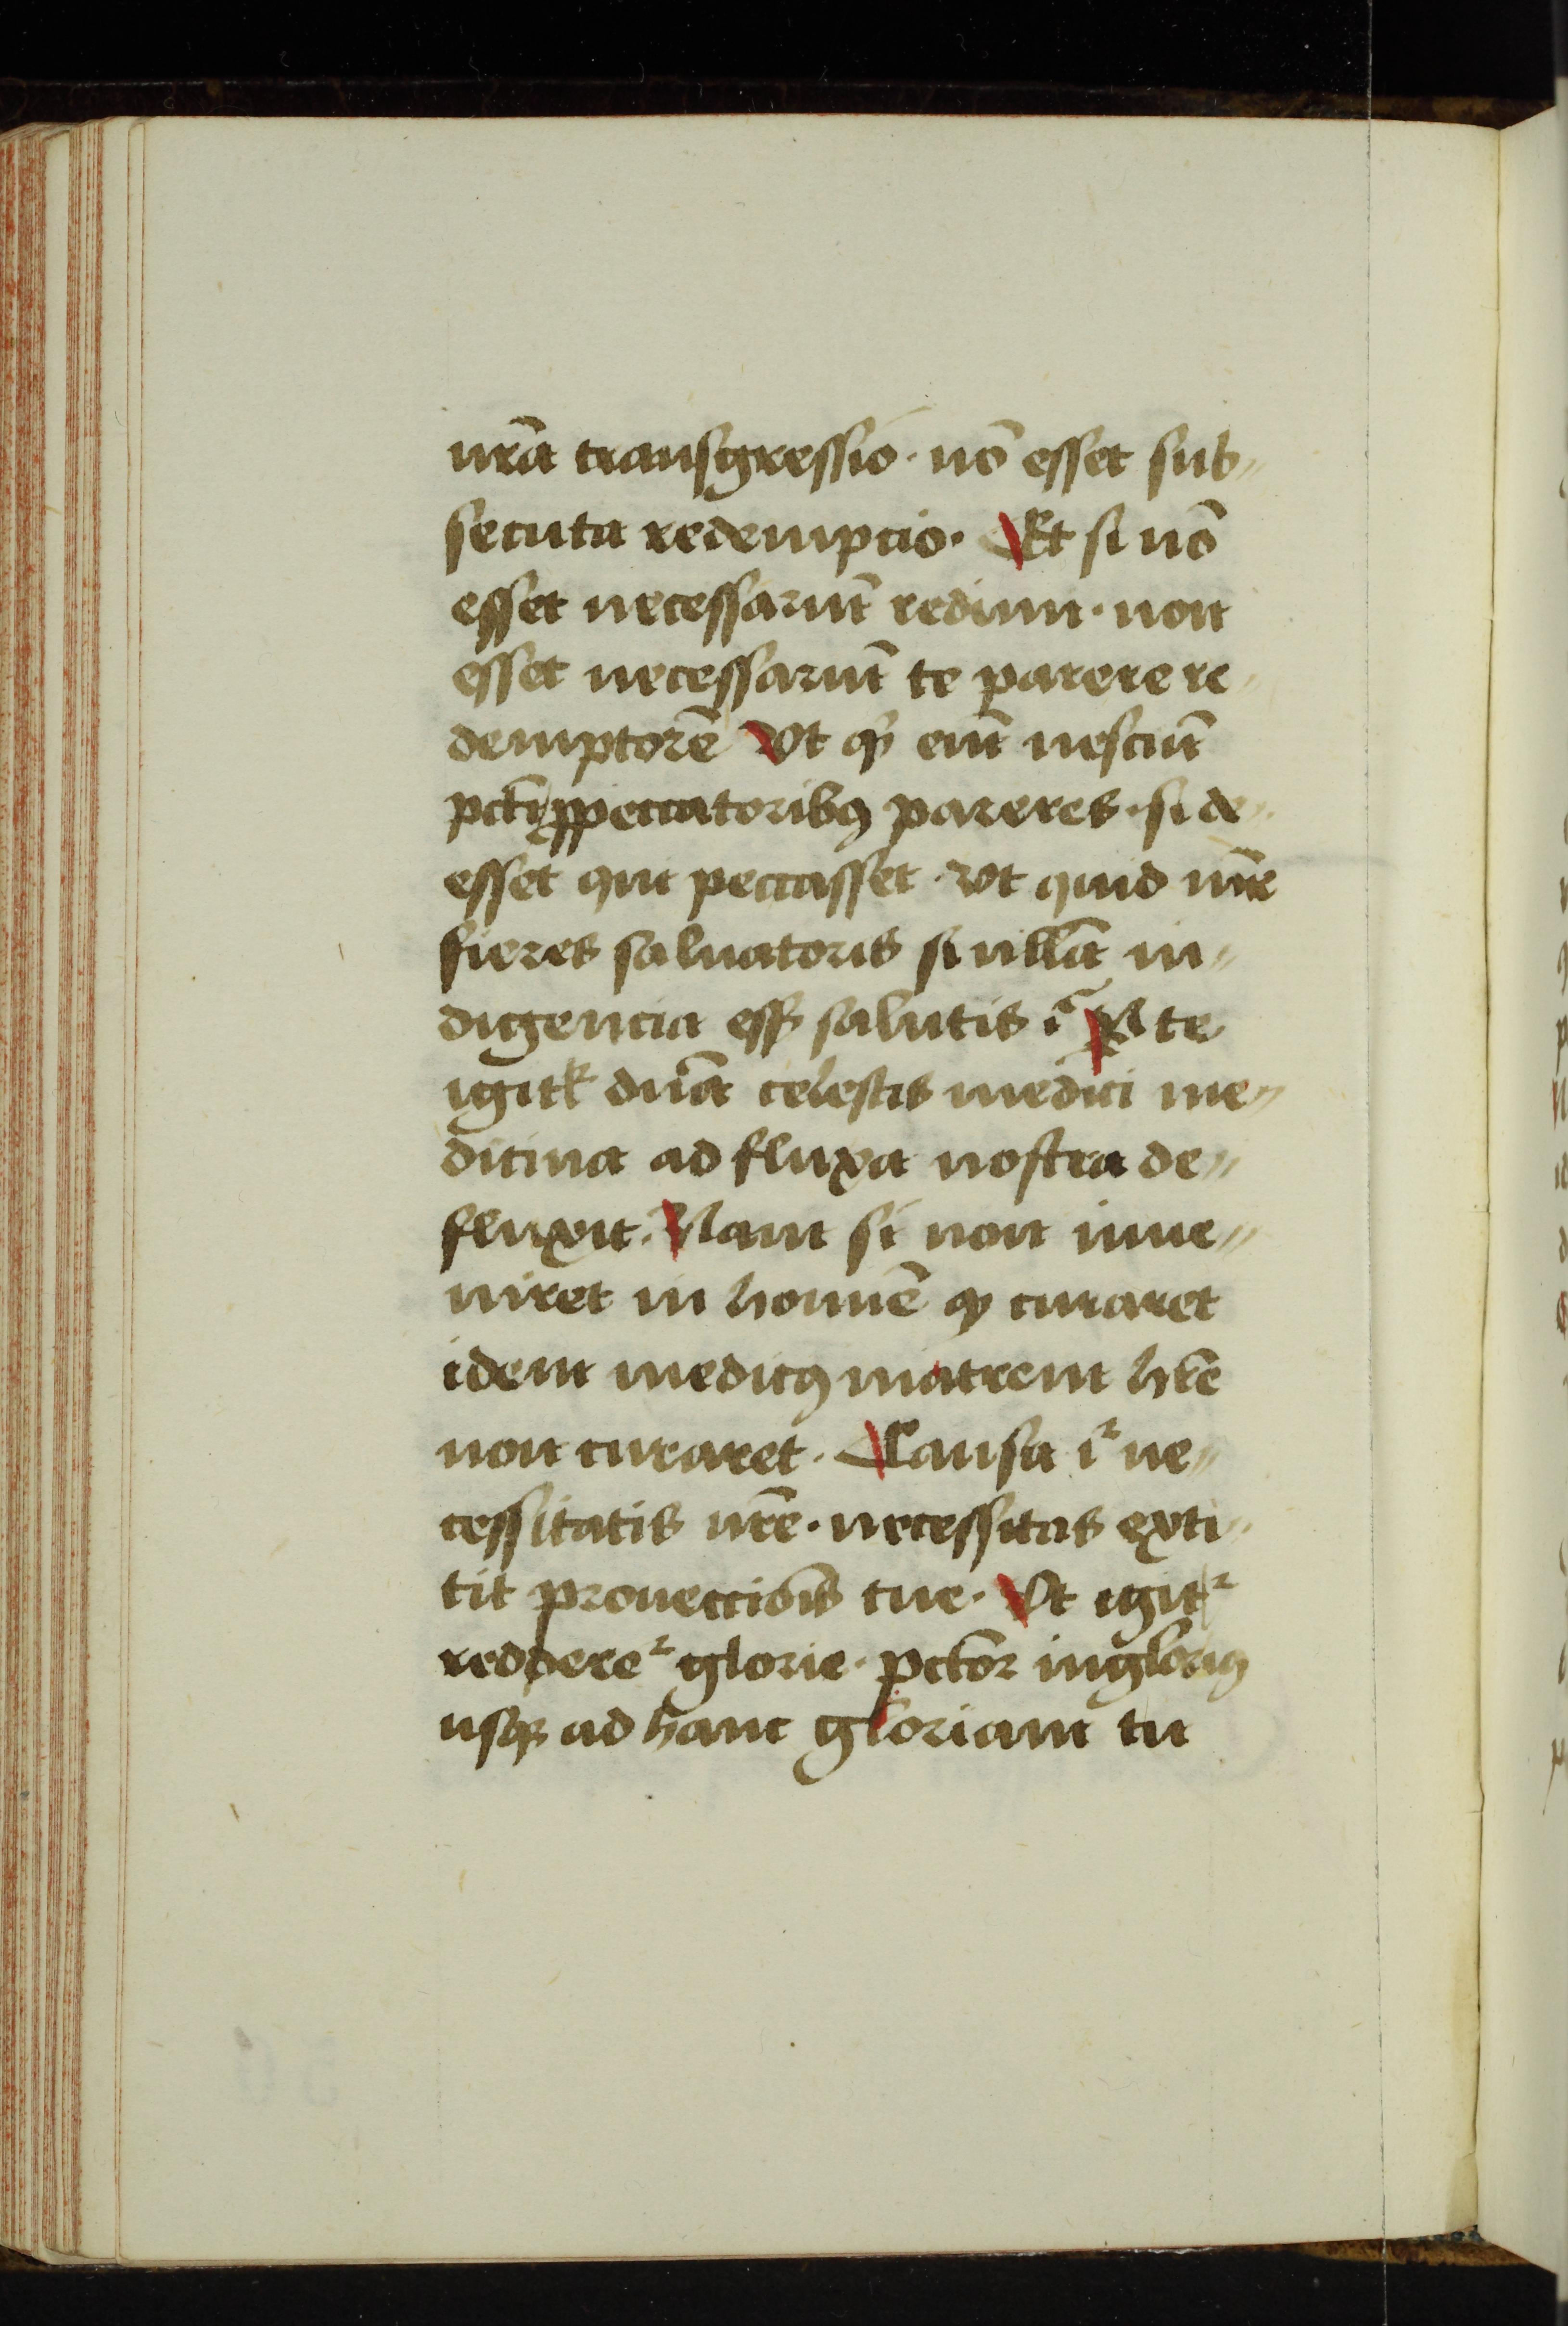 nr̄a transgressio · nō esset sub〃
secuta redempcio · Et si nō
esset necessariū redimi · non
esset necessariū te parere re〃
demptorē Vt qͥd eni͞ nesciu͞
pcti ꝓ peccatoribꝯ pareres · si de〃
esset qui peccasset · vt quid mr̄e
fieres saluatoris si nulla͞ in〃
digencia eēt salutis
te
igitᷣ dn̄a celestis medici me〃
dicina ad fluxa nostra de〃
fluxit · Nam si non inue〃
niret in homīe qͩ curaret
idem medicꝯ matrem hr̄e
non curaret · Causa iᷣ ne〃
cessitatis nr̄e · necessitas exti〃
tit prouecciōis tue · Vt igitᷣ
reddereᷣ glorie · pctor̄ ingloriꝯ
usqꝫ ad hanc gloriam tu